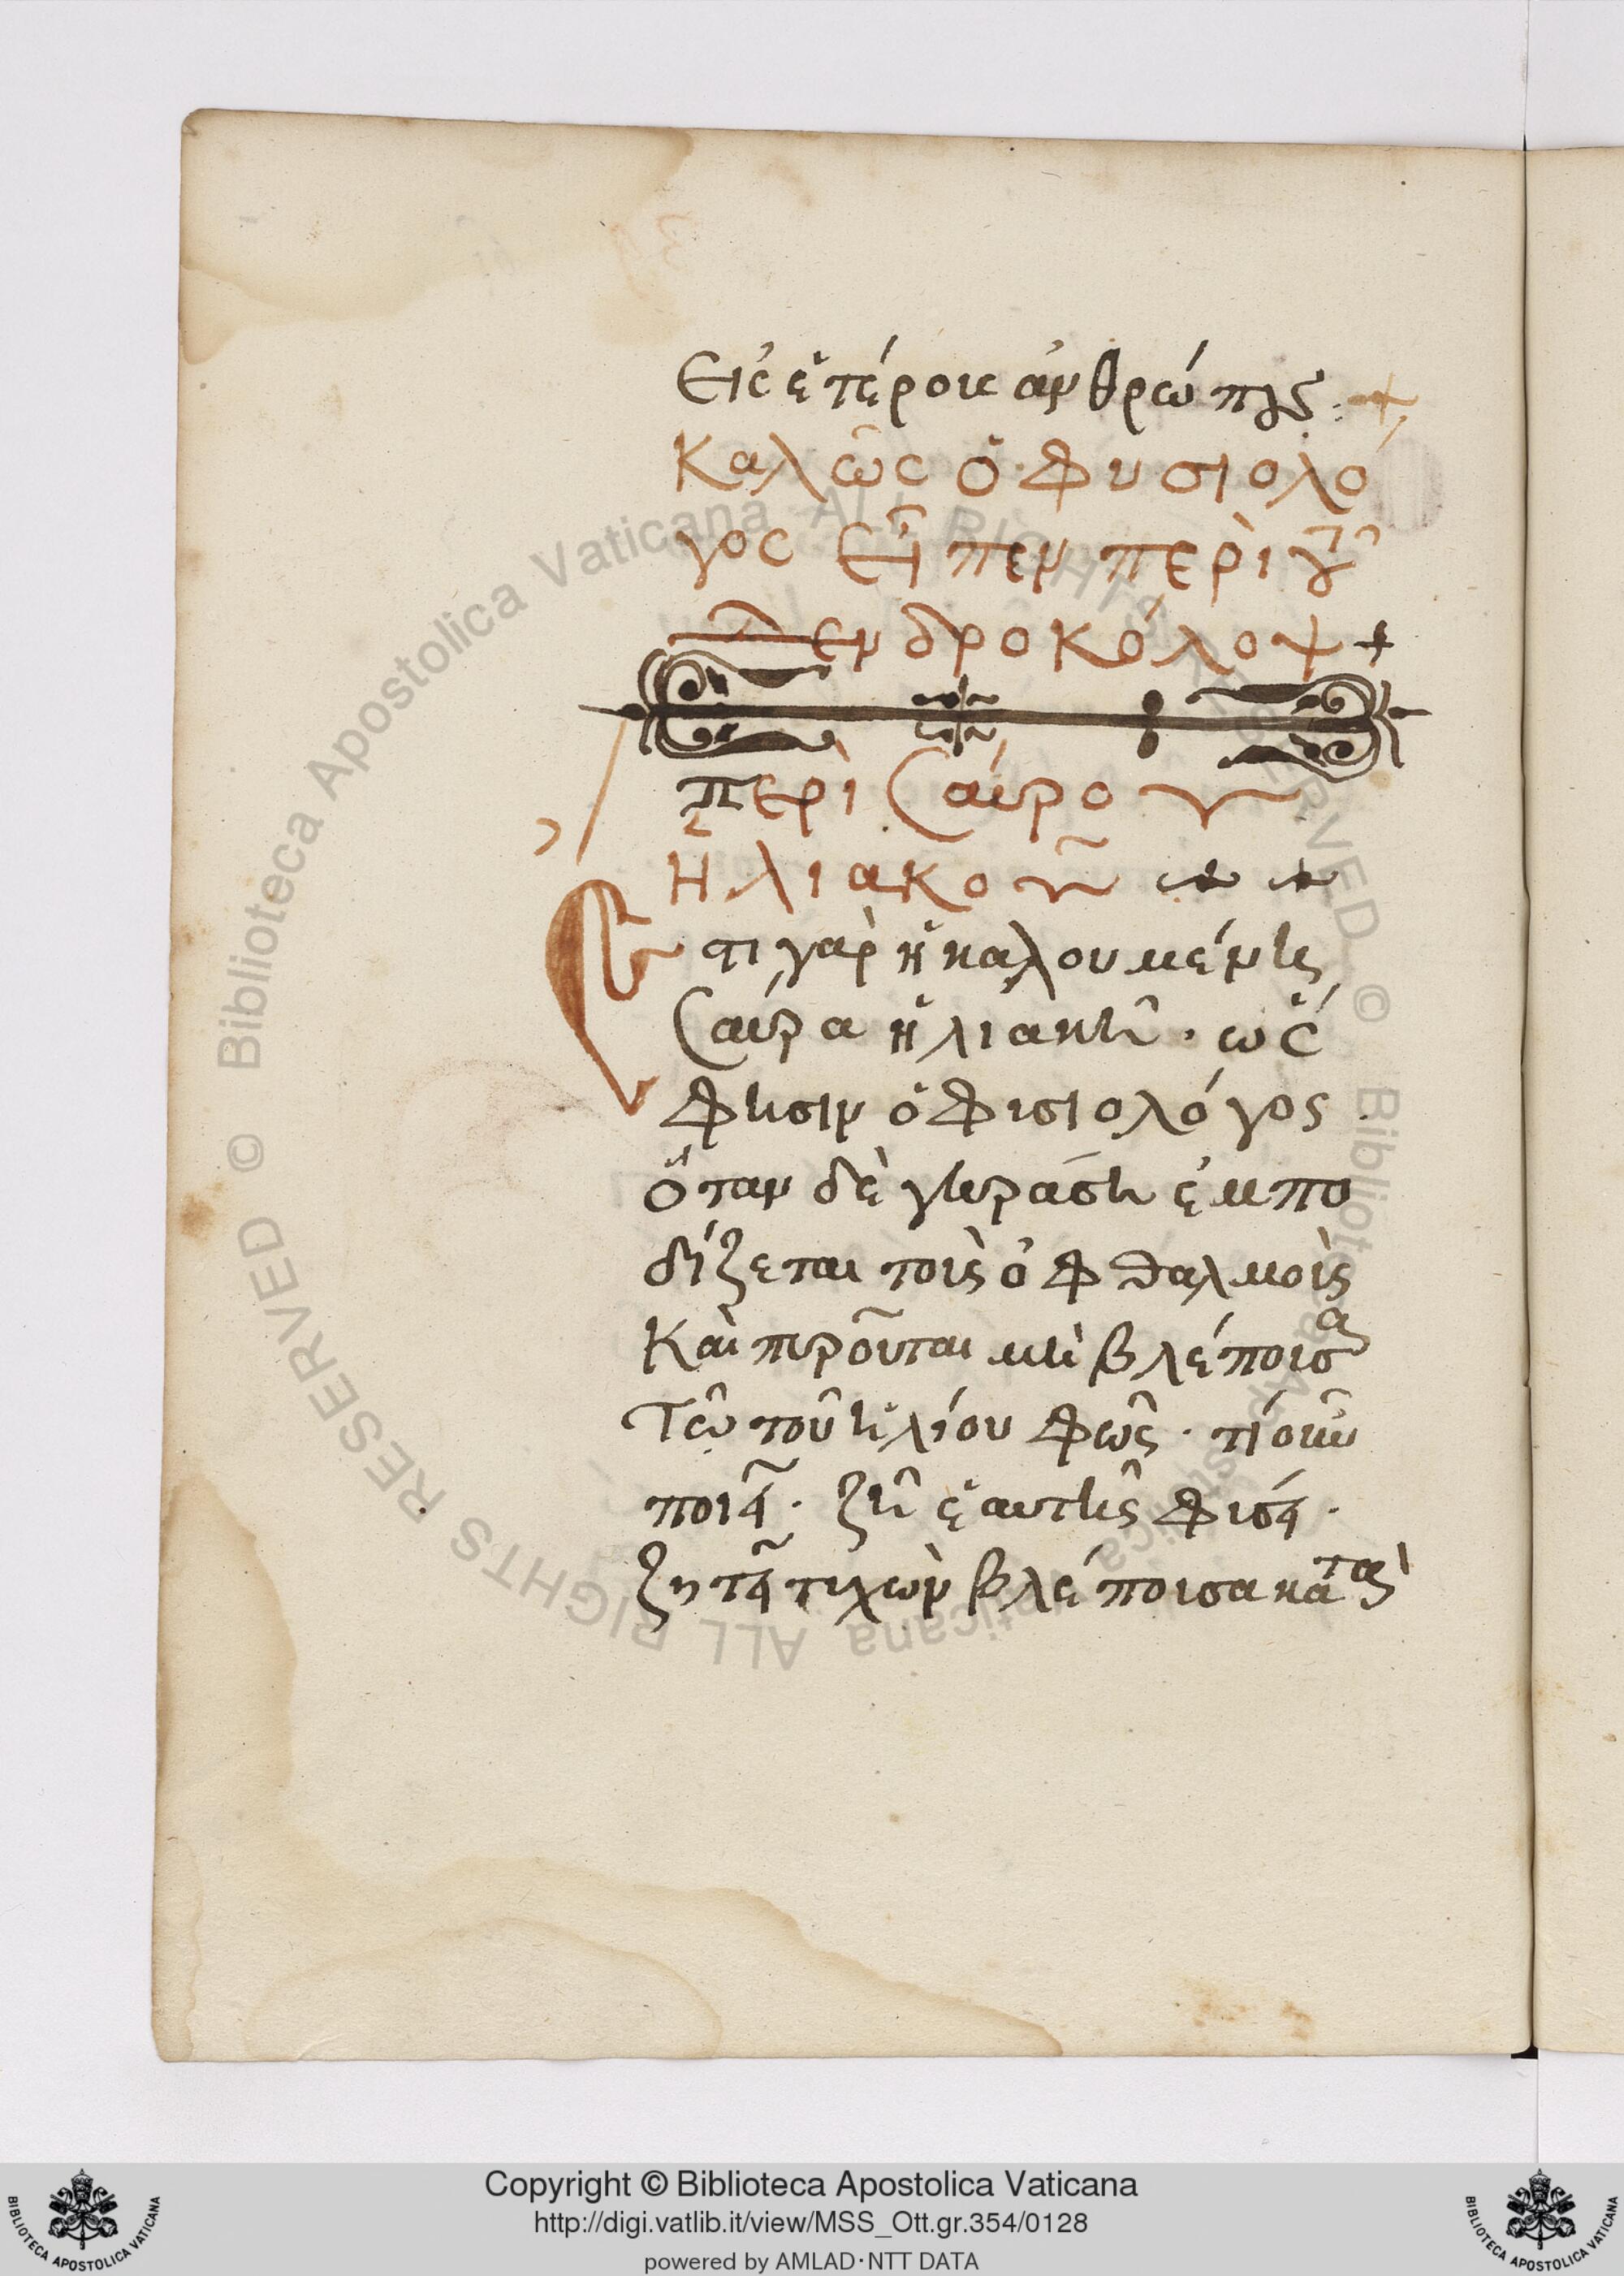 Εἰς ἑτέροις ἀνθρώποις :+
Καλῶς ὁ Φυσιολό
γος Εἶπεν περὶ τοῦ
Δενδροκόλαψ +
περὶ Σαύρου
Ἡλιακοῦ
Ἔστι γὰρ ἡ καλουμένης
Σαύρα ἡλιακὴ · ὡς
Φησιν ὁ Φισιολόγος .
Ὅταν δὲ γηράσῃ ἐμπο
δίζεται τοὶς ὀφθαλμοὶς
Καὶ πυροῦται μὴ βλέποισα
Τῶ τοῦ ἡλίου φῶς · τί οὖν
ποιεῖ · ζῆ ἑαυτῆς φισει .
ζητεῖ τιχὼν βλέποισα κατὰ
Copyright © Biblioteca Apostolica Vaticana
http://digi.vatlib.it/view/MSS_Ott.gr.354/0128
powered by AMLAD·NTT DATA
BIBLIOTECA APOSTOLICA VATICANA
BIBLIOTECA APOSTOLICA VATICANA
© Biblioteca Apostolica Vaticana ALL RIGHTS RESERVED © Biblioteca Apostolica Vaticana ALL RIGHTS RESERVED